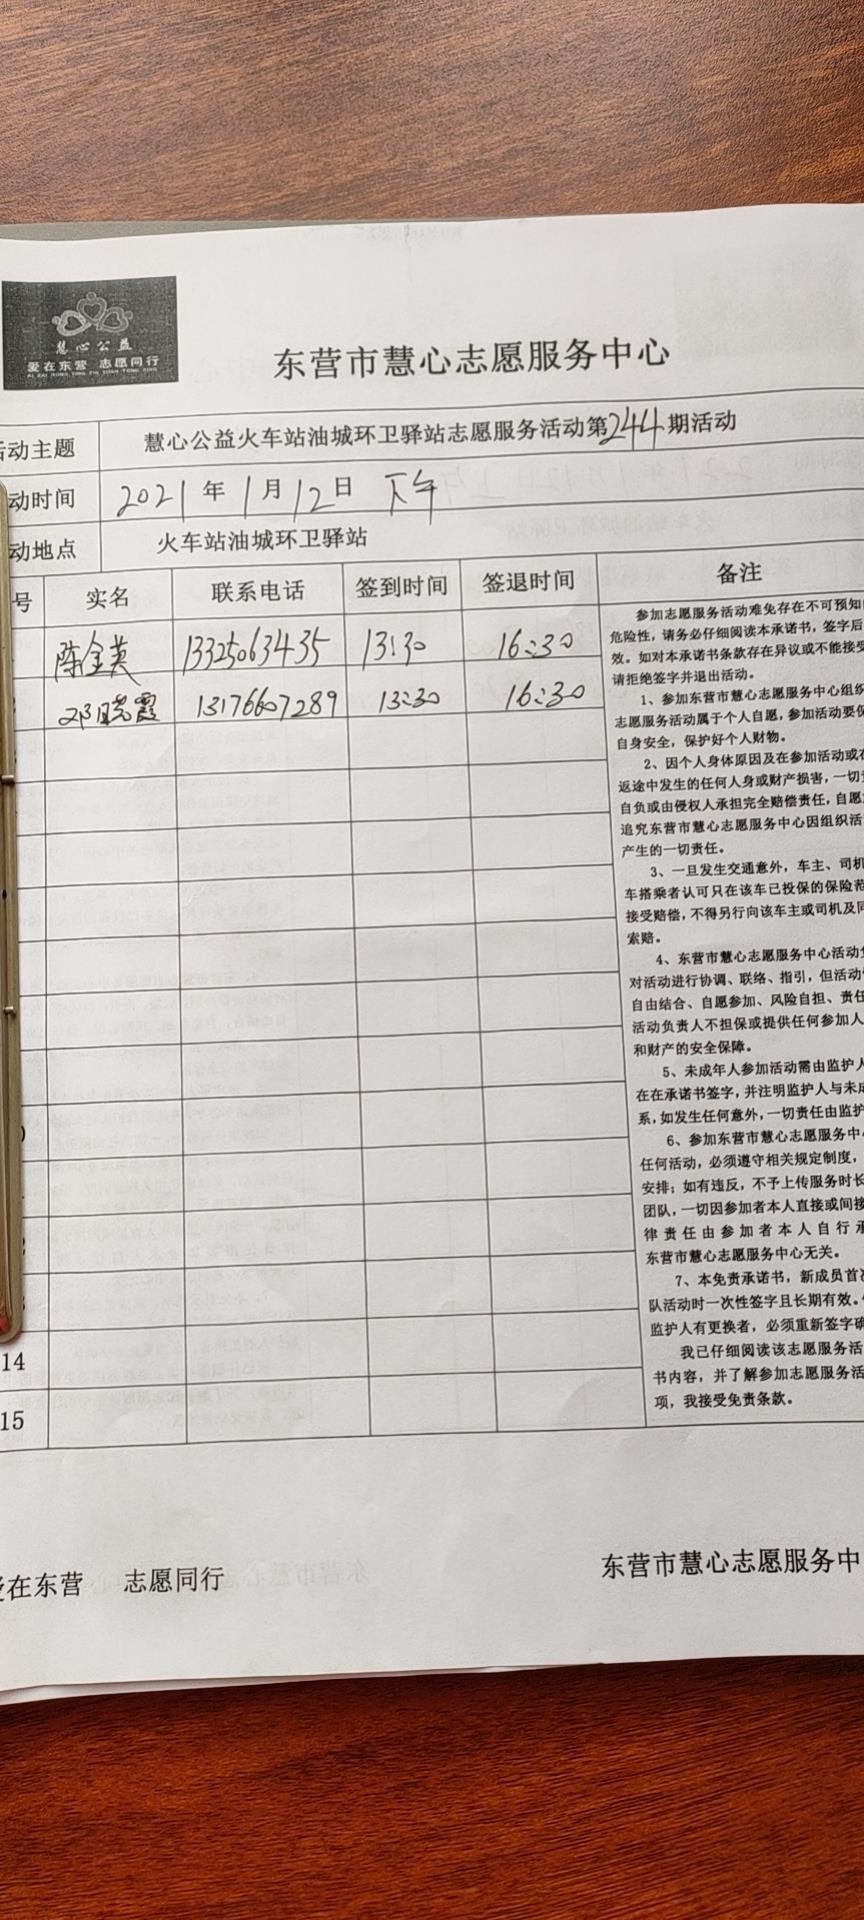 慧心公益
爱在东营 志愿同行
东营市慧心志愿服务中心
活动主题 慧心公益火车站油城环卫驿站志愿服务活动第244期活动
动时间 2021年1月12日 下午
动地点 火车站油城环卫驿站
号 实名 联系电话 签到时间 签退时间 备注
陈金英 13325063435 13:30 16:30
邓晓霞 13176607289 13:30 16:30
14
15
参加志愿服务活动难免存在不可预知
危险性，请务必仔细阅读本承诺书，签字后
效。如对本承诺书条款存在异议或不能接受
请拒绝签字并退出活动。
1、参加东营市慧心志愿服务中心组织
志愿服务活动属于个人自愿，参加活动要保
自身安全，保护好个人财物。
2、因个人身体原因及在参加活动或在
返途中发生的任何人身或财产损害，一切责
自负或由侵权人承担完全赔偿责任，自愿
追究东营市慧心志愿服务中心因组织活
产生的一切责任。
3、一旦发生交通意外，车主、司机
车搭乘者认可只在该车已投保的保险范
接受赔偿，不得另行向该车主或司机及同
索赔。
4、东营市慧心志愿服务中心活动负
对活动进行协调、联络、指引，但活动
自由结合、自愿参加、风险自担、责任
活动负责人不担保或提供任何参加人
和财产的安全保障。
5、未成年人参加活动需由监护人
在在承诺书签字，并注明监护人与未成
系，如发生任何意外，一切责任由监护
6、参加东营市慧心志愿服务中心
任何活动，必须遵守相关规定制度，
安排；如有违反，不予上传服务时长
团队，一切因参加者本人直接或间接
律责任由参加者本人自行承
东营市慧心志愿服务中心无关。
7、本免责承诺书，新成员首次
队活动时一次性签字且长期有效。
监护人有更换者，必须重新签字确
我已仔细阅读该志愿服务活
书内容，并了解参加志愿服务活
项，我接受免责条款。
爱在东营 志愿同行
东营市慧心志愿服务中